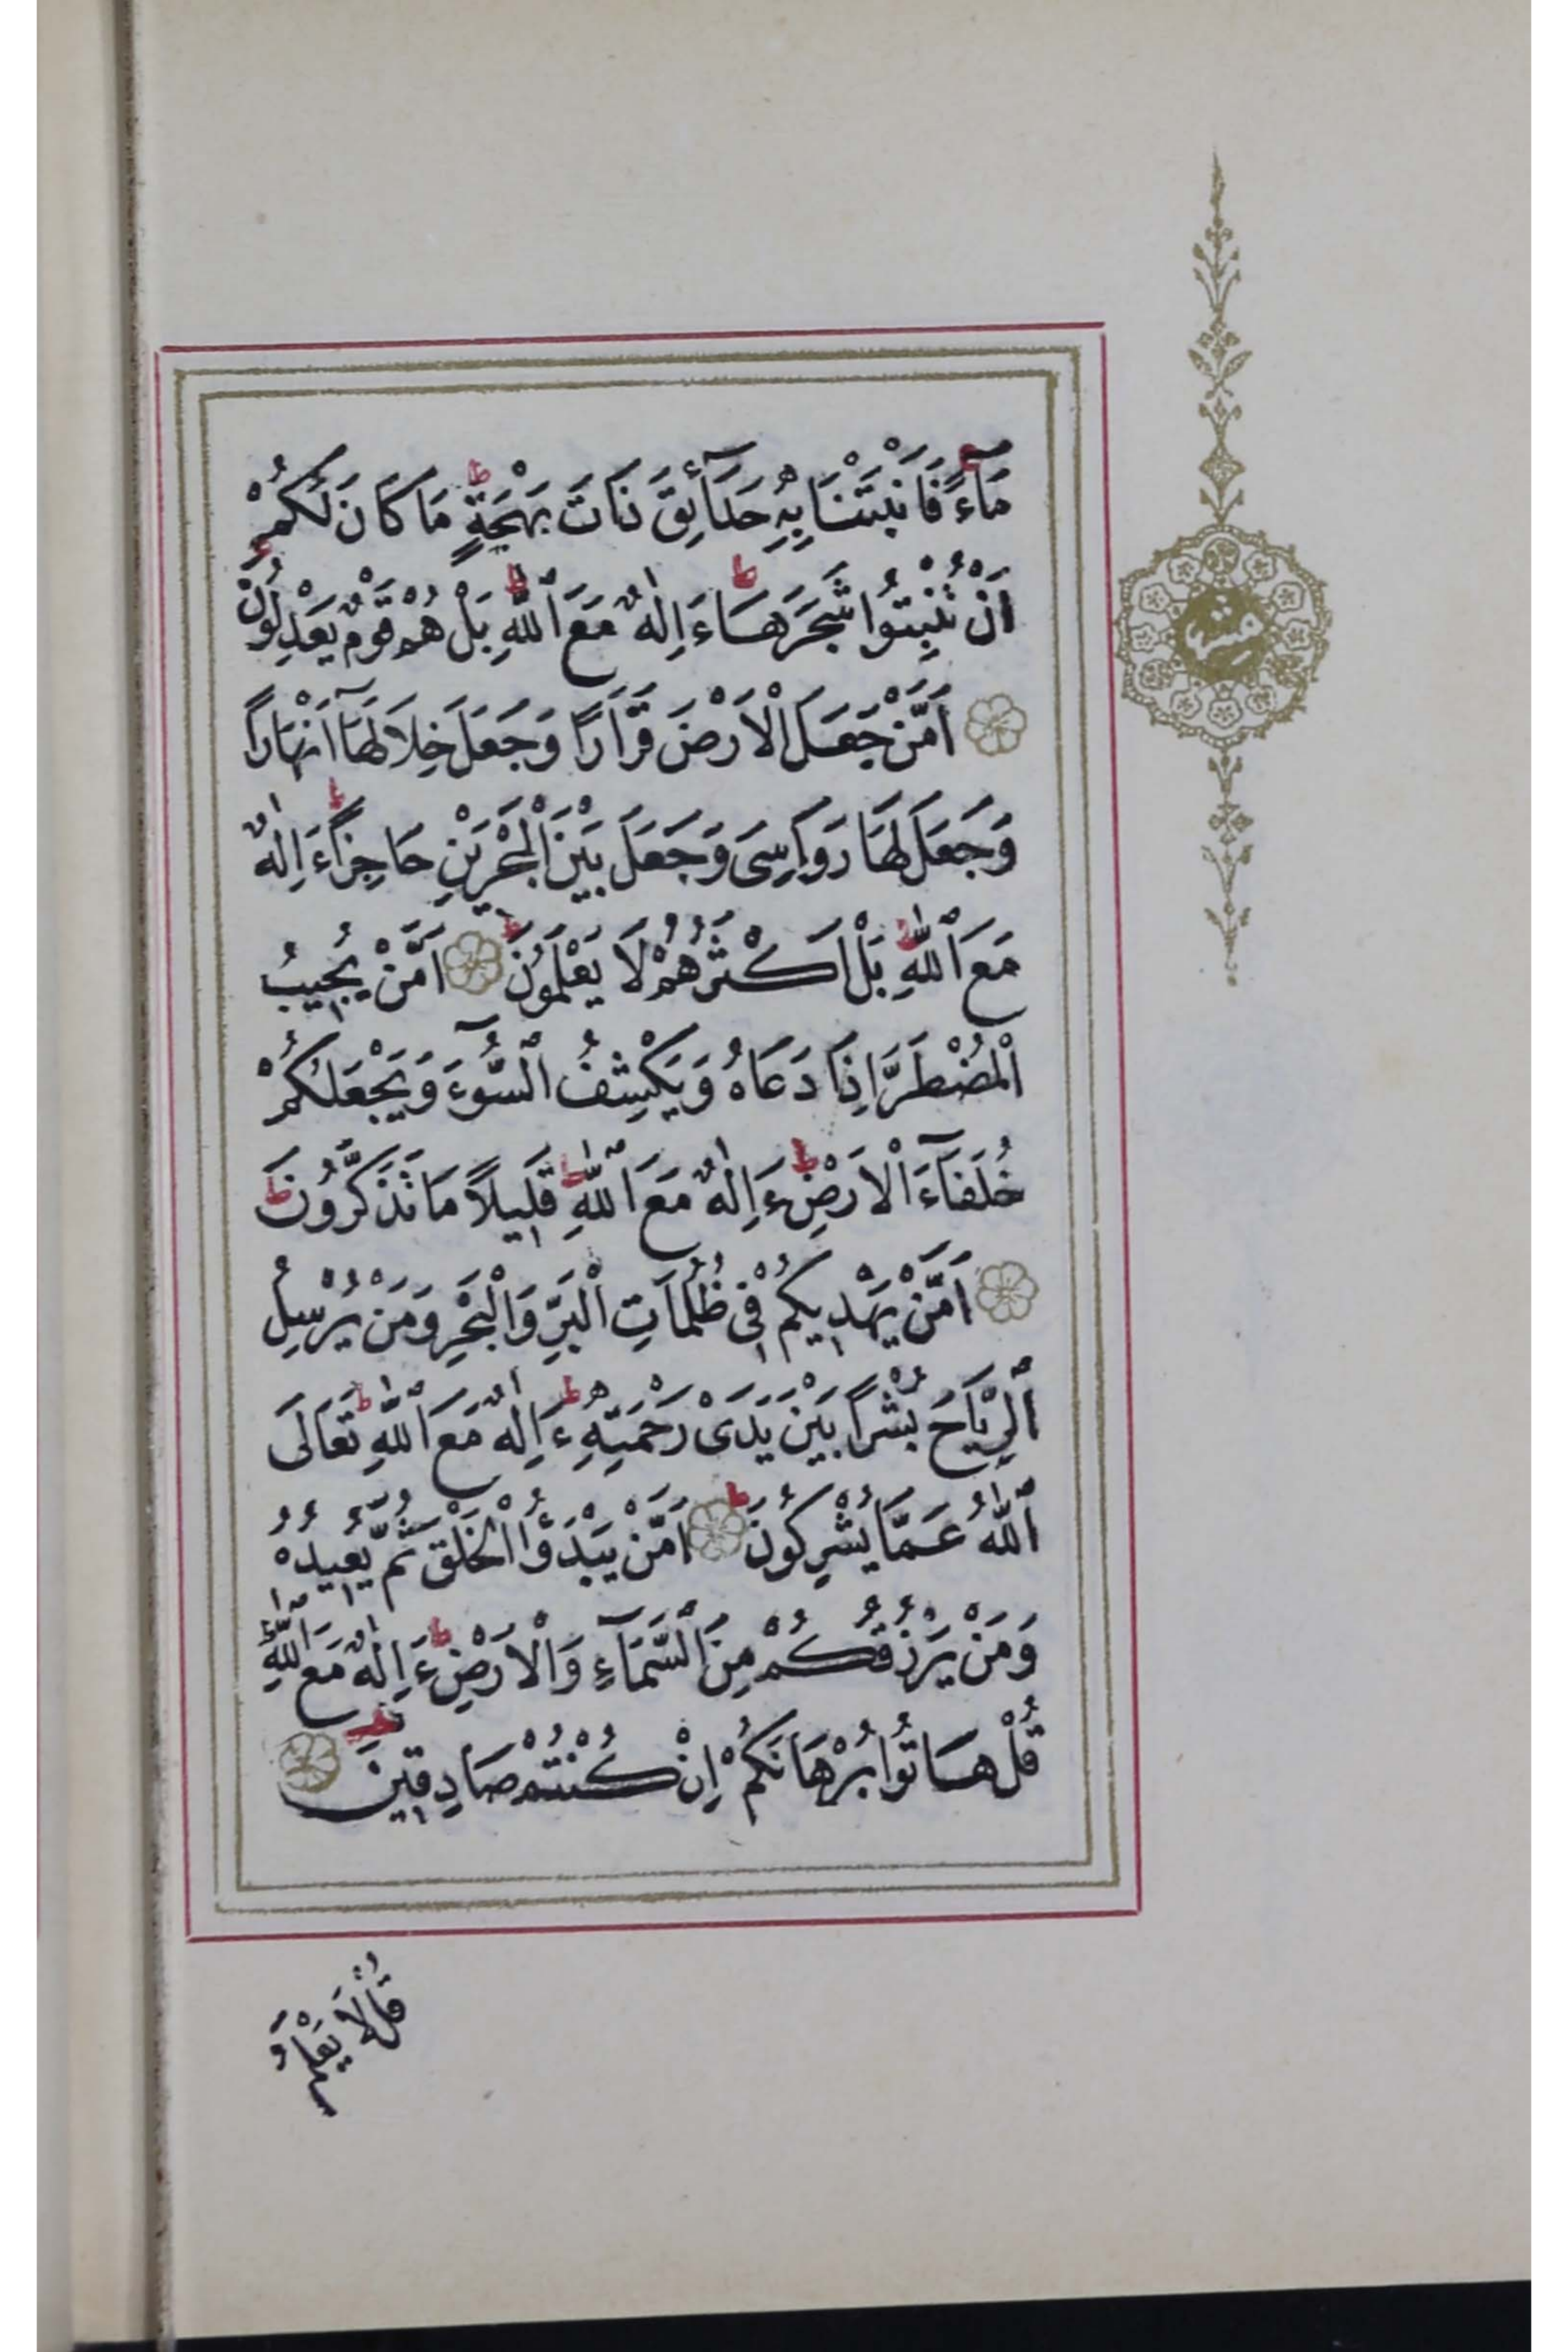 مَآءً فَاَنْبَتْنَا بِهٖ حَدَآئِقَ ذَاتَ بَهْجَةٍ مَا كَانَ لَكُمْ
اَنْ تُنْبِتُوا شَجَرَهَا ءَاِلٰهٌ مَعَ ٱللّٰهِ بَلْ هُمْ قَوْمٌ يَعْدِلُونَ
اَمَّنْ جَعَلَ الْاَرْضَ قَرَارًا وَجَعَلَ خِلَالَهَآ اَنْهَارًا
وَجَعَلَ لَهَا رَوَاسِىَ وَجَعَلَ بَيْنَ الْبَحْرَيْنِ حَاجِزًا ءَاِلٰهٌ
مَعَ ٱللّٰهِ بَلْ اَكْثَرُهُمْ لَا يَعْلَمُونَ اَمَّنْ يُجٖيبُ
الْمُضْطَرَّ اِذَا دَعَاهُ وَيَكْشِفُ ٱلسُّوٓءَ وَيَجْعَلُكُمْ
خُلَفَآءَ الْاَرْضِ ءَاِلٰهٌ مَعَ ٱللّٰهِ قَلٖيلًا مَا تَذَكَّرُونَ
اَمَّنْ يَهْدٖيكُمْ فٖى ظُلُمَاتِ الْبَرِّ وَالْبَحْرِ وَمَنْ يُرْسِلُ
ٱلرِّيَاحَ بُشْرًا بَيْنَ يَدَىْ رَحْمَتِهٖ ءَاِلٰهٌ مَعَ ٱللّٰهِ تَعَالَى
ٱللّٰهُ عَمَّا يُشْرِكُونَ اَمَّنْ يَبْدَؤُا الْخَلْقَ ثُمَّ يُعٖيدُهُ
وَمَنْ يَرْزُقُكُمْ مِنَ ٱلسَّمَآءِ وَالْاَرْضِ ءَاِلٰهٌ مَعَ ٱللّٰهِ
قُلْ هَاتُوا بُرْهَانَكُمْ اِنْ كُنْتُمْ صَادِقٖينَ
قُلْ لَا يَعْلَمُ